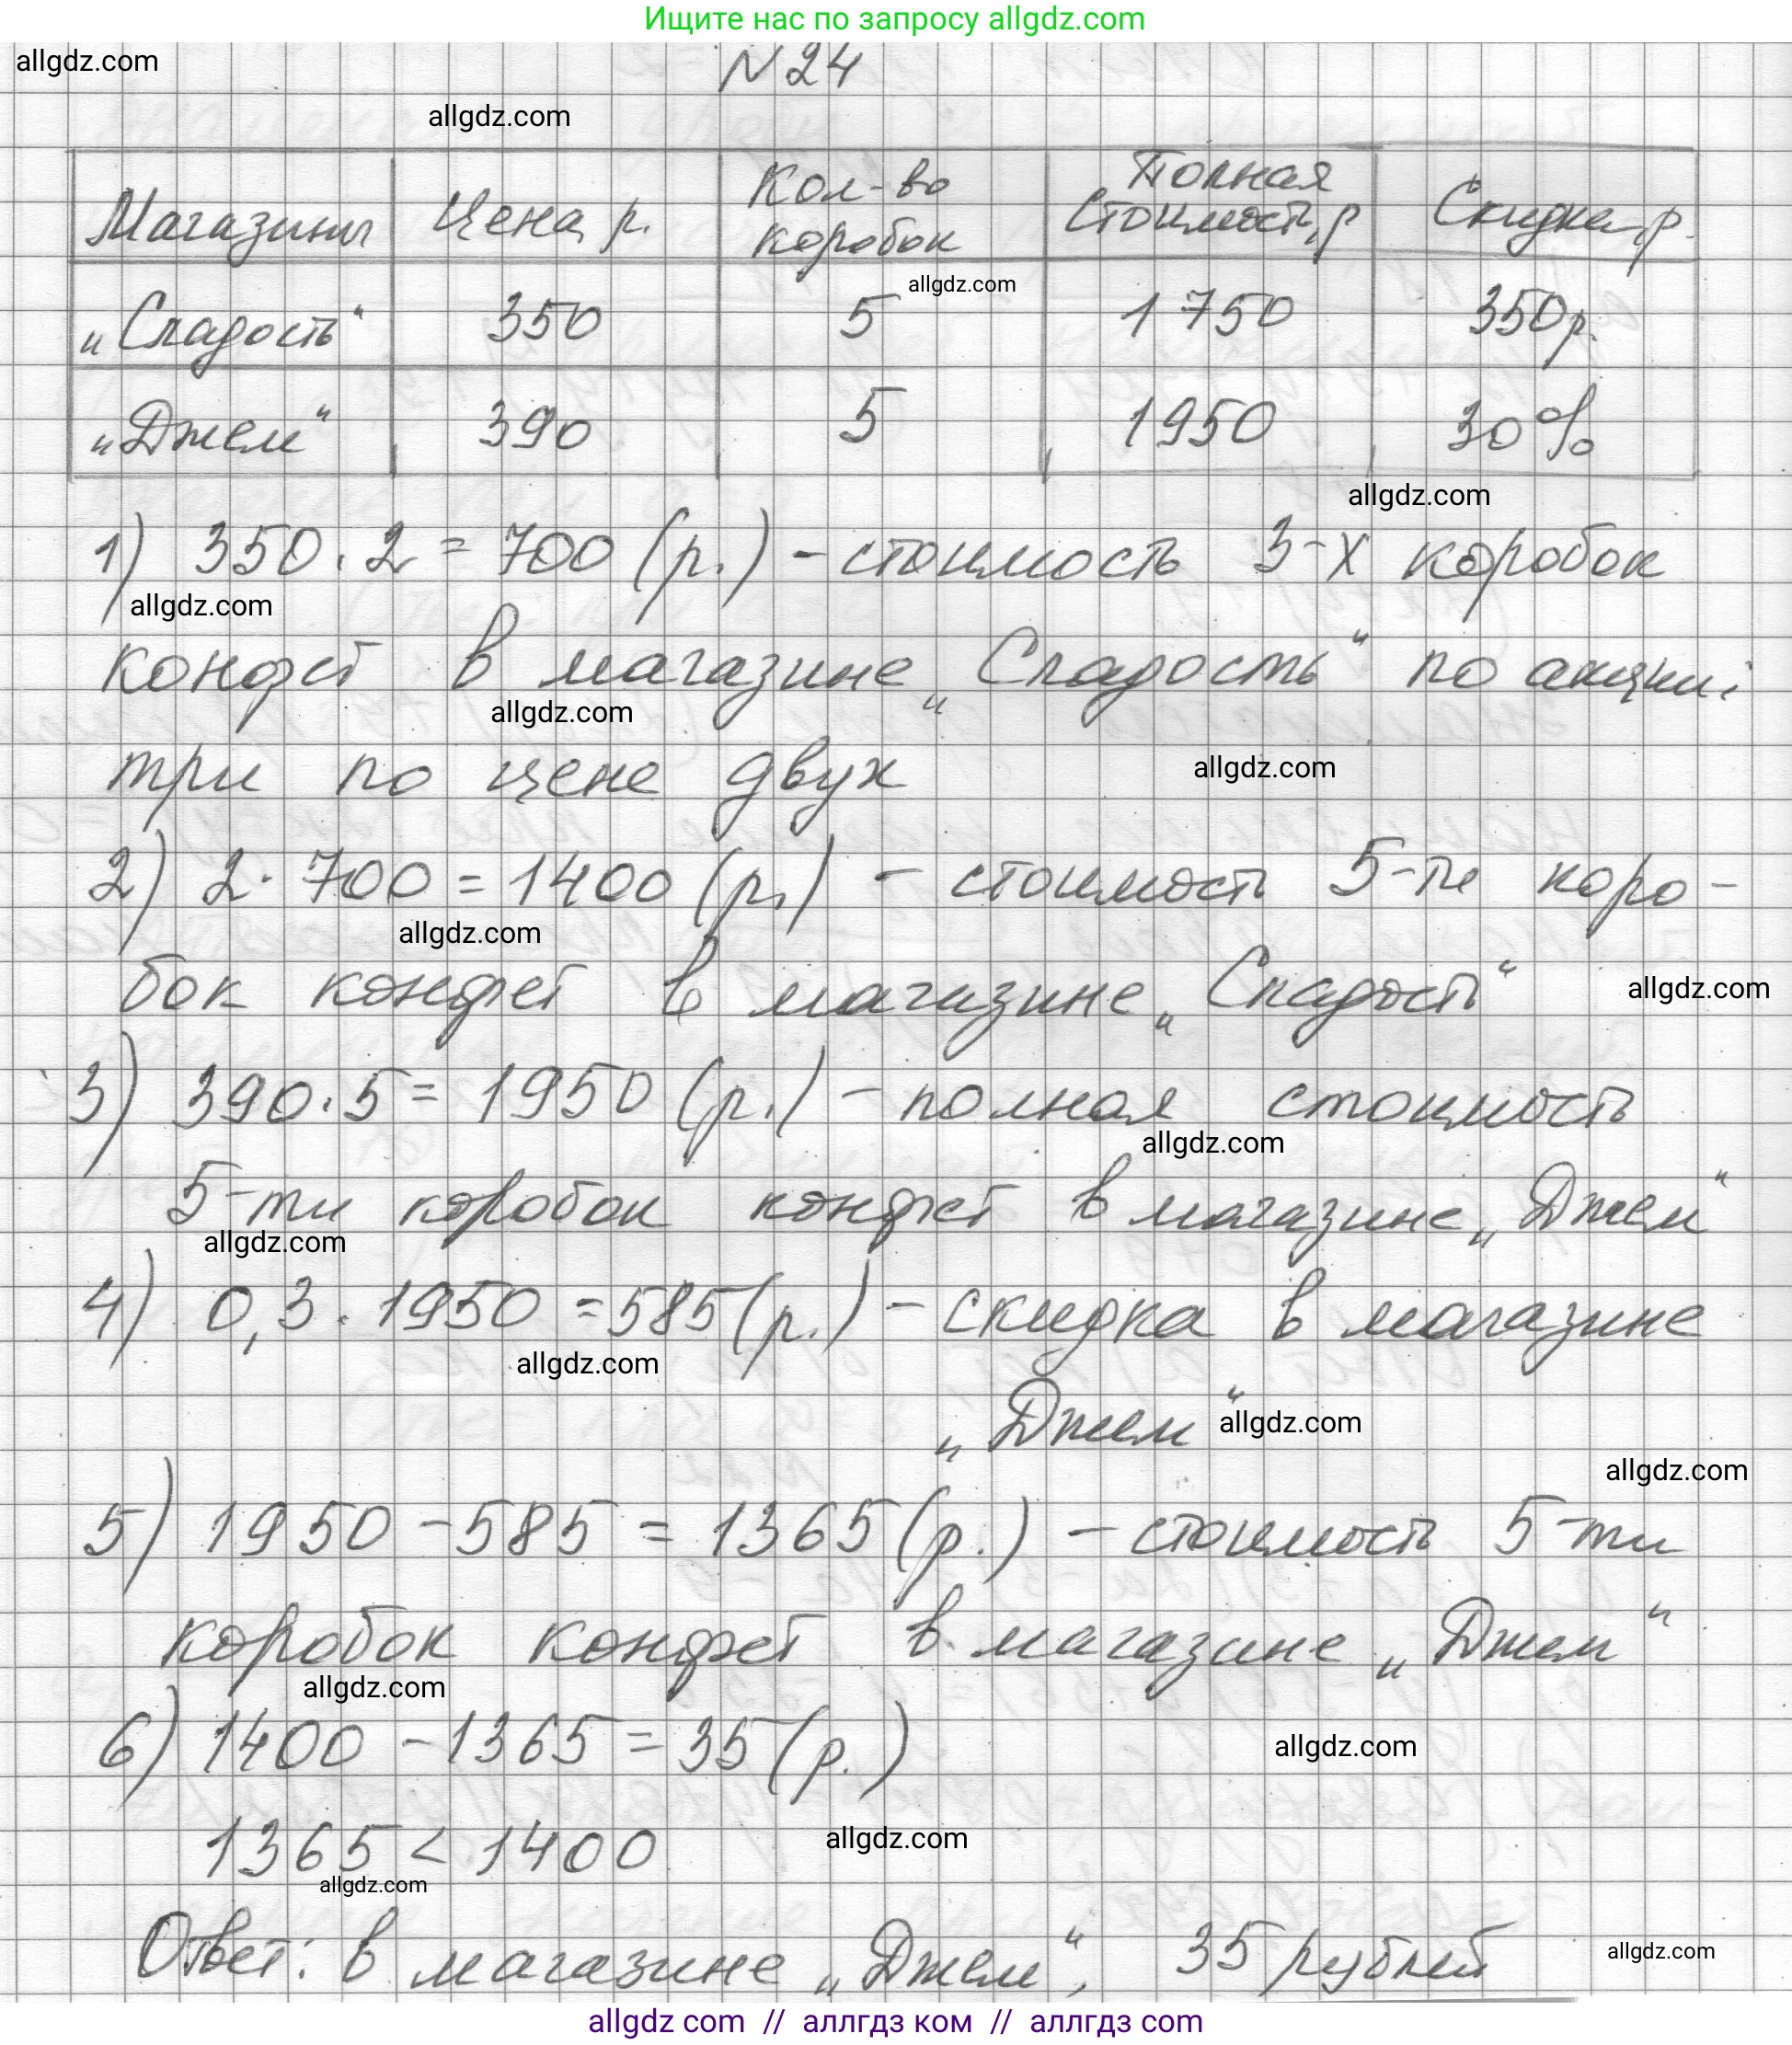 Ищите нас по запросу allgdz.com
allgdz.com
N 24
allgdz.com
Магазины | Цена, р. | Кол-во коробок | Полная стоимость, р | Скидка, р.
„Сладость“ | 350 | 5 | 1750 | 350 р.
allgdz.com
„Джем“ | 390 | 5 | 1950 | 30%
allgdz.com
1) 350 · 2 = 700 (р.) – стоимость 3-х коробок
allgdz.com
конфет в магазине „Сладость“ по акции:
allgdz.com
три по цене двух
allgdz.com
2) 2 · 700 = 1400 (р.) – стоимость 5-ти коро-
allgdz.com
бок конфет в магазине „Сладость“
allgdz.com
3) 390 · 5 = 1950 (р.) – полная стоимость
allgdz.com
5-ти коробок конфет в магазине „Джем“
allgdz.com
4) 0,3 · 1950 = 585 (р.) – скидка в магазине
allgdz.com
„Джем“
allgdz.com
allgdz.com
5) 1950 – 585 = 1365 (р.) – стоимость 5-ти
коробок конфет в магазине „Джем“
allgdz.com
6) 1400 – 1365 = 35 (р.)
allgdz.com
1365 < 1400
allgdz.com
allgdz.com
Ответ: в магазине „Джем“; 35 рублей
allgdz.com
allgdz com // аллгдз ком // аллгдз com